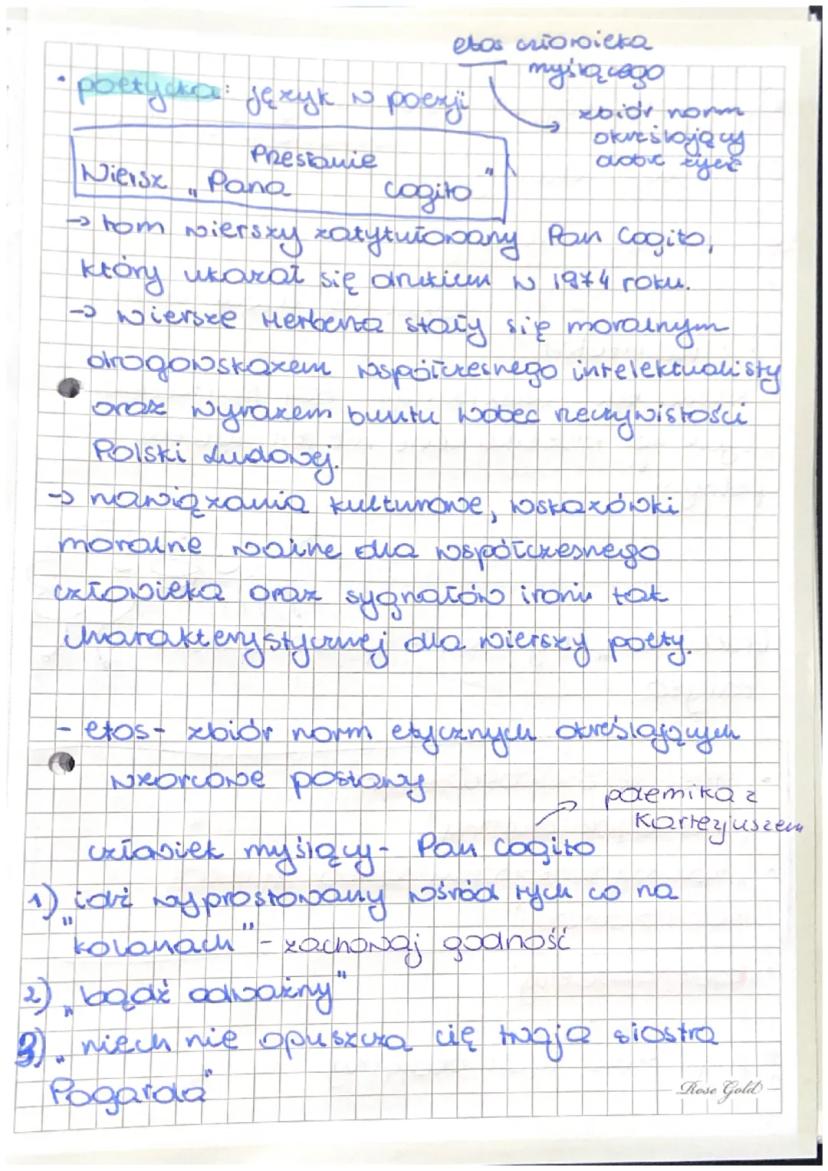 etos człowieka
myślącego
zbiór norm
określający
dobre życie
• poetycka: język w poezji
Przesłanie
Wiersz „Pana Cogito"
→ tom wierszy zatytułowany Pan Cogito,
który ukazał się drukiem w 1974 roku.
→ wiersze Herberta stały się moralnym
drogowskazem współczesnego intelektualisty
oraz wyrazem buntu wobec rzeczywistości
Polski Ludowej.
→ nawiązania kulturowe, wskazówki
moralne ważne dla współczesnego
człowieka oraz sygnałów ironii tak
charakterystycznej dla wierszy poety.
- etos - zbiór norm etycznych określających
wzorcowe postawy
polemika z
Kartezjuszem
człowiek myślący - Pan Cogito
1) „idź wyprostowany wśród tych co na
kolanach" - zachowaj godność
2) „bądź odważny"
3) „niech nie opuszcza cię twoja siostra
Pogarda"
Rose Gold